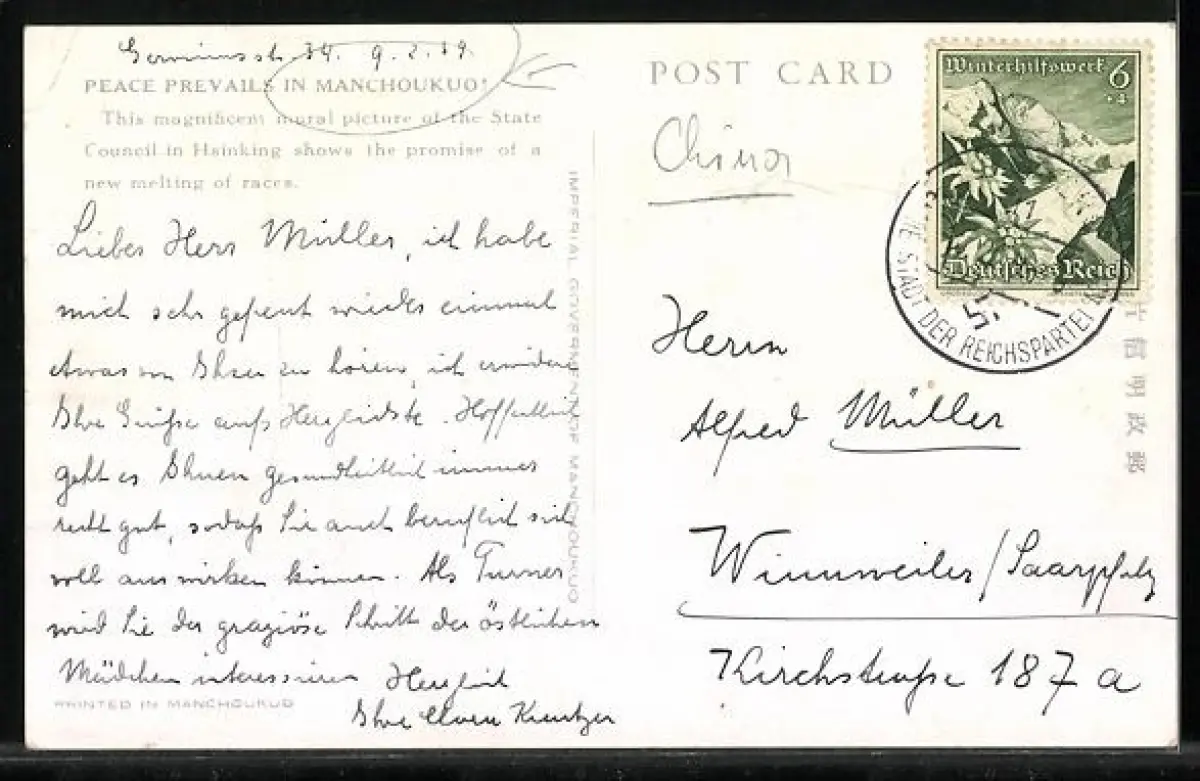 34. 9.2.39.
PEACE PREVAILS IN MANCHOUKUO!
This magnificent mural picture of the State
Council in Hsinking shows the promise of a
new melting of races.
Liebes Herr Müller, ich habe
mich sehr gefreut wieder einmal
etwas von Ihnen zu hören, ich erwidere
Ihre Grüße aufs Herzlichste. Hoffentlich
geht es Ihnen gesundheitlich immer
recht gut, sodaß Sie auch beruflich sich
voll auswirken können. Als Turner
wird Sie der graziöse Schritt der östlichen
Mädchen interessieren Herzlich
Ihre Kreutzer
PRINTED IN MANCHOUKUO
IMPERIAL GOVERMENT OF MANCHOUKUO
POST CARD
China
Winterhilfswerk 6
+4
Deutsches Reich
STADT DER REICHSPARTEI
Herrn
Alfred Müller
Winnweiler/Saarpfalz
Kirchstraße 187 a
片信明政郵